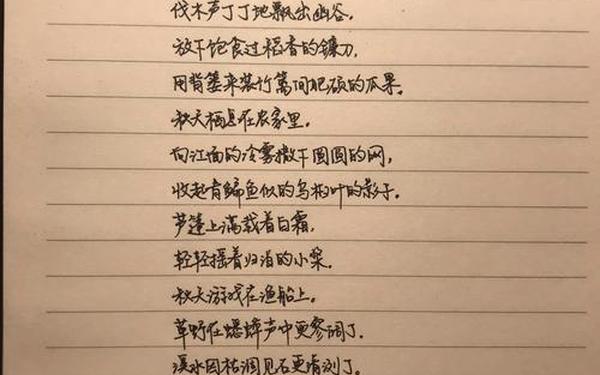 伐木声丁丁地飘出幽谷。
放下饱食过稻香的镰刀,
用背篓来装竹篱间肥硕的瓜果。
秋天栖息在农家里。
向江面的冷雾撒下圆圆的网,
收起青鳊鱼似的乌桕叶的影子。
芦篷上满载着白霜,
轻轻摇着归泊的小桨。
秋天游戏在渔船上。
草野在蟋蟀声中更寥阔了。
溪水因枯涸见石更清浏了。